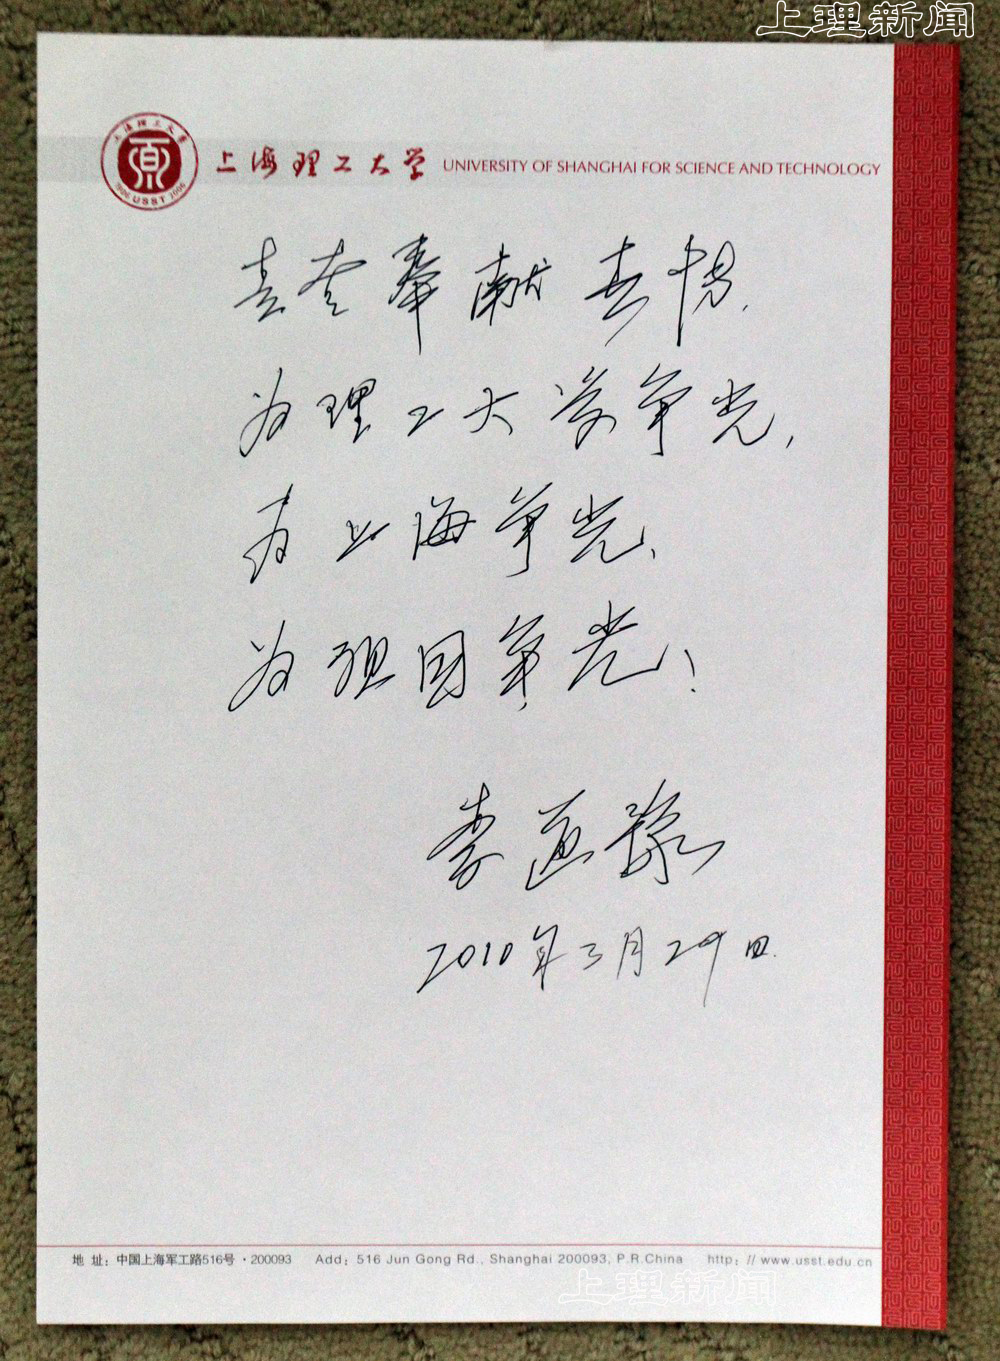 上理新闻
上海理工大学
1906 USST 2006
上海理工大学 UNIVERSITY OF SHANGHAI FOR SCIENCE AND TECHNOLOGY
奉献
为理工大学争光,
为上海争光、
为祖国争光!
李道豫
2010年3月29日
地 址：中国上海军工路516号·200093 Add：516 Jun Gong Rd., Shanghai 200093, P.R.China http：// www.usst.edu.cn
上理新闻